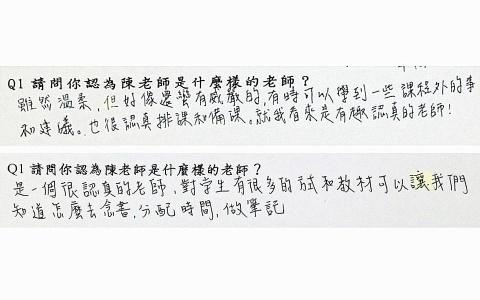 Q1 請問你認為陳老師是什麼樣的老師？
雖然溫柔，但好像還蠻有威嚴的，有時可以學到一些課程外的事
和建議。也很認真排課和備課。就我看來是有趣認真的老師！
Q1 請問你認為陳老師是什麼樣的老師？
是一個很認真的老師，對學生有很多的試和教材可以讓我們
知道怎麼去念書，分配時間，做筆記